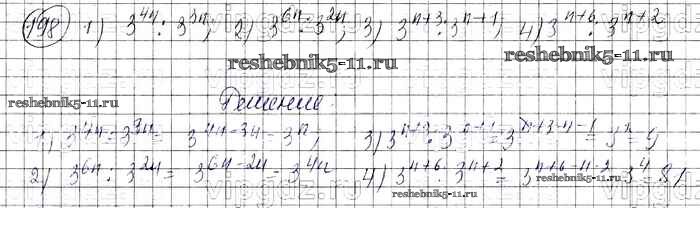 198 1) 3^{4n} : 3^{3n}; 2) 3^{6n} : 3^{2n}; 3) 3^{n+3} : 3^{n+1}; 4) 3^{n+6} : 3^{n+2}
reshebnik5-11.ru
reshebnik5-11.ru
Решение
1) 3^{4n} : 3^{3n} = 3^{4n-3n} = 3^n; 3) 3^{n+3} : 3^{n+1} = 3^{n+3-n-1} = 3^2 = 9
2) 3^{6n} : 3^{2n} = 3^{6n-2n} = 3^{4n} 4) 3^{n+6} : 3^{n+2} = 3^{n+6-n-2} = 3^4 = 81
reshebnik5-11.ru
reshebnik5-11.ru
vipgdz.ru